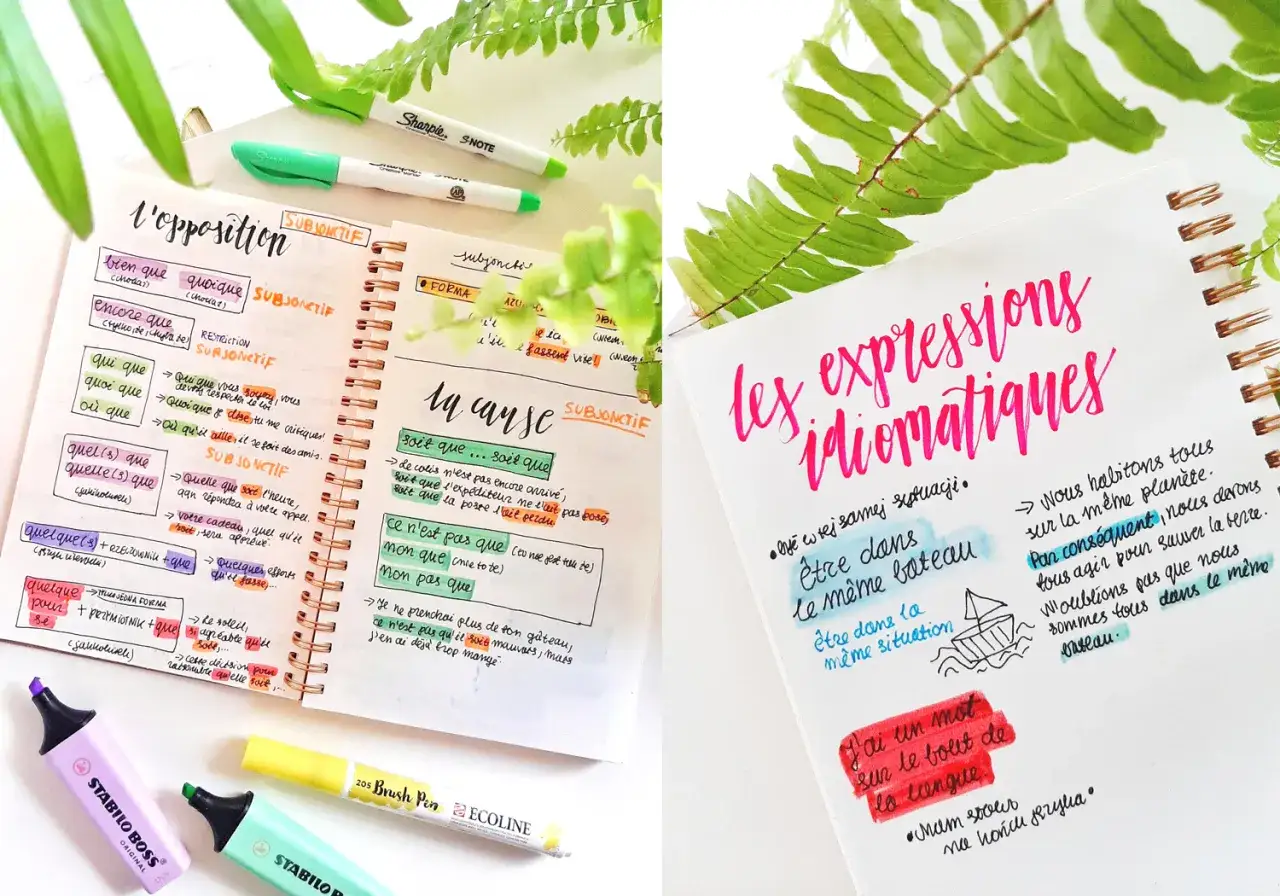 l'opposition
SUBJONCTIF
bien que quoique
(chociaż) (chociaż)
SUBJONCTIF
encore que
RESTRICTION
SUBJONCTIF
qui que
quoi que
où que
→ Qui que vous soyez, vous
devez respecter la loi
→ Quoi que je dise, tu me critiques!
→ Où qu'il aille, il se fait des amis.
SUBJONCTIF
quel(s) que
quelle(s) que
(jakikolwiek)
→ Quelle que soit l'heure,
répondra à votre appel.
→ Votre cadeau, quel qu'il
soit, sera apprécié.
quelque(s) + RZECZOWNIK + que
→ Quelques efforts
qu'il fasse,...
quelque
pour
si
FORMA
+ PRZYMIOTNIK + que
(jakkolwiek)
→ Le soleil,
si agréable qu'il
soit,...
→ Cette décision pour
raisonnable qu'elle soit,...
subjonctif
• FORMA
fassent vite!
la cause
SUBJONCTIF
soit que ... soit que
→ Le colis n'est pas encore arrivé,
soit que l'expéditeur ne l'ait pas posé,
soit que la poste l'ait perdu.
ce n'est pas que (to nie jest tak że)
non que (nie to że)
non pas que
→ Je ne prendrai plus de ton gâteau,
ce n'est pas qu'il soit mauvais, mais
j'en ai déjà trop mangé.
Sharpie. S-NOTE
STABILO BOSS
ORIGINAL
STABILO BOSS
205 Brush Pen
ECOLINE
les expressions
idiomatiques
• być w tej samej sytuacji •
être dans
le même bateau
être dans la
même situation
→ Nous habitons tous
sur la même planète.
Par conséquent, nous devons
tous agir pour sauver la terre.
N'oublions pas que nous
sommes tous dans le même
bateau.
J'ai un mot
sur le bout de
la langue.
• Mam słowo
na końcu języka •